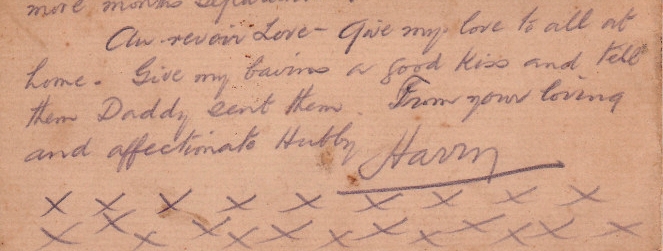 more months
Au-revoir Love- Give my love to all at
home. Give my bairns a good kiss and tell
them Daddy sent them. From your loving
and affectionate Hubby Harry
x x x x x x x x x
x x x x x x x x x x